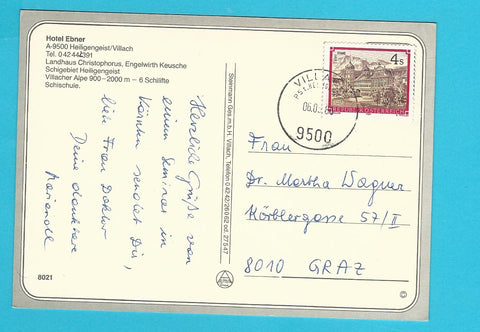 Hotel Ebner
A-9500 Heiligengeist/Villach
Tel. 0 42 44/391
Landhaus Christophorus, Engelwirth Keusche
Schigebiet Heiligengeist
Villacher Alpe 900–2000 m – 6 Schilifte
Schischule.
Herzliche Grüße von
einem Seminar in
Kärnten sendet Dir,
liebe Frau Doktor
Deine dankbare
Marianne
8021
Steinmann Ges.m.b.H. Villach, Telefon 0 42 42/26 0 62 od. 27 5 47
VILLA
9500
4 S
REPUBLIK ÖSTERREICH
Frau
Dr. Martha Wagner
Körblergasse 57/II
8010 GRAZ
©